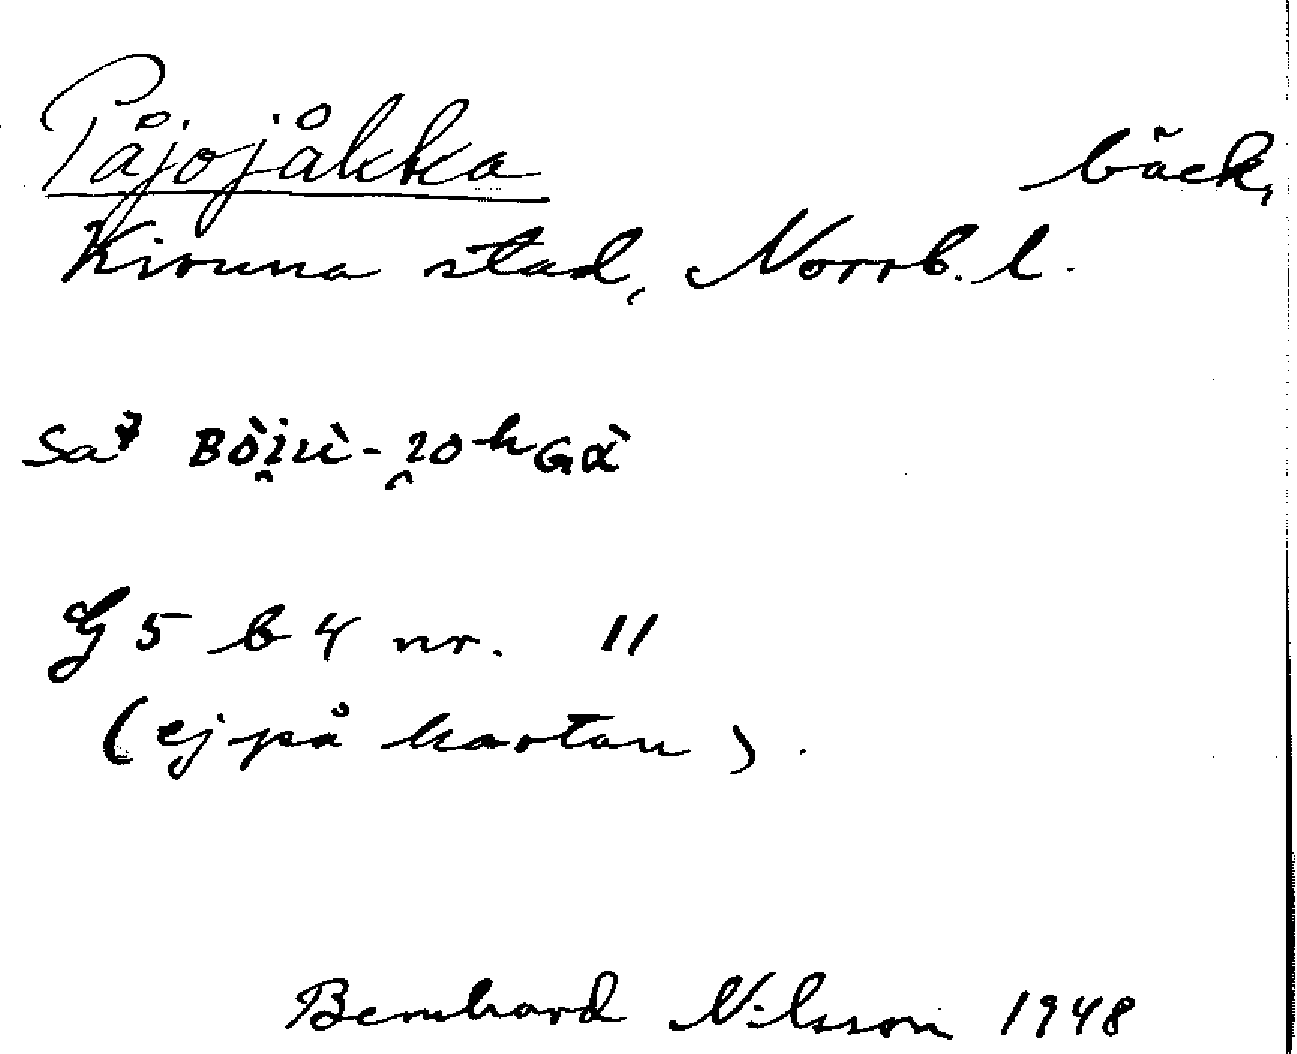 Påjojåkka bäck,
Kiruna stad, Norrb. l.
G 5 b 4 nr. 11
(ej på kartan).
Bernhard Nilsson 1948